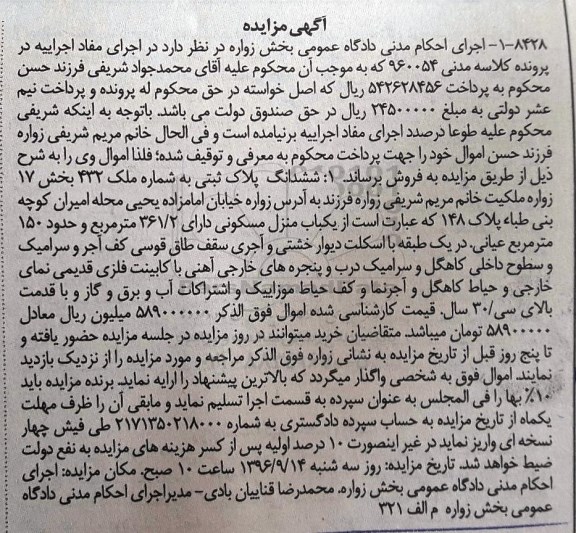 آگهی مزایده
۱-۸۴۲۸- اجرای احکام مدنی دادگاه عمومی بخش زواره در نظر دارد در اجرای مفاد اجراییه در
پرونده کلاسه مدنی ۹۶۰۰۵۴ که به موجب آن محکوم علیه آقای محمدجواد شریفی فرزند حسن
محکوم به پرداخت ۵۴۲۶۲۸۴۵۶ ریال که اصل خواسته در حق محکوم له پرونده و پرداخت نیم
عشر دولتی به مبلغ ۲۴۵۰۰۰۰۰ ریال در حق صندوق دولت می باشد. باتوجه به اینکه شریفی
محکوم علیه طوعا درصدد اجرای مفاد اجراییه برنیامده است و فی الحال خانم مریم شریفی زواره
فرزند حسن اموال خود را جهت پرداخت محکوم به معرفی و توقیف شده؛ فلذا اموال وی را به شرح
ذیل از طریق مزایده به فروش برساند. ۱: ششدانگ پلاک ثبتی به شماره ملک ۴۳۲ بخش ۱۷
زواره ملکیت خانم مریم شریفی زواره فرزند به آدرس زواره خیابان امامزاده یحیی محله امیران کوچه
بنی طباء پلاک ۱۴۸ که عبارت است از یکباب منزل مسکونی دارای ۳۶۱/۲ مترمربع و حدود ۱۵۰
مترمربع عیانی. در یک طبقه با اسکلت دیوار خشتی و آجری سقف طاق قوسی کف آجر و سرامیک
و سطوح داخلی کاهگل و سرامیک درب و پنجره های خارجی آهنی با کابینت فلزی قدیمی نمای
خارجی و حیاط کاهگل و آجرنما و کف حیاط موزاییک و اشتراکات آب و برق و گاز و با قدمت
بالای سی/۳۰ سال. قیمت کارشناسی شده اموال فوق الذکر ۵۸۹۰۰۰۰۰۰ میلیون ریال معادل
۵۸۹۰۰۰۰۰ تومان میباشد. متقاضیان خرید میتوانند در روز مزایده در جلسه مزایده حضور یافته و
تا پنج روز قبل از تاریخ مزایده به نشانی زواره فوق الذکر مراجعه و مورد مزایده را از نزدیک بازدید
نمایند. اموال فوق به شخصی واگذار میگردد که بالاترین پیشنهاد را ارایه نماید. برنده مزایده باید
۱۰٪ بها را فی المجلس به عنوان سپرده به قسمت اجرا تسلیم نماید و مابقی آن را ظرف مهلت
یکماه از تاریخ مزایده به حساب سپرده دادگستری به شماره ۲۱۷۱۳۵۰۲۱۸۰۰۰ طی فیش چهار
نسخه ای واریز نماید در غیر اینصورت ۱۰ درصد اولیه پس از کسر هزینه های مزایده به نفع دولت
ضبط خواهد شد. تاریخ مزایده: روز سه شنبه ۱۳۹۶/۹/۱۴ ساعت ۱۰ صبح. مکان مزایده: اجرای
احکام مدنی دادگاه عمومی بخش زواره. محمدرضا قناییان بادی- مدیراجرای احکام مدنی دادگاه
عمومی بخش زواره م الف ۳۲۱